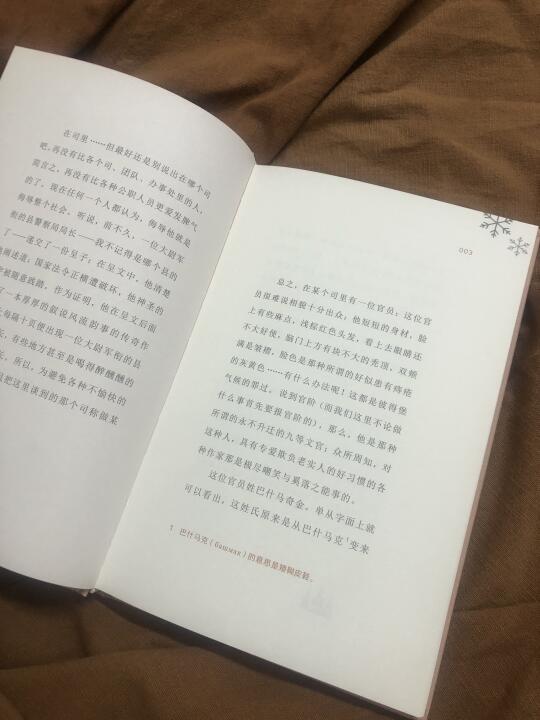 在司里……但最好还是别说出在哪个司
吧。再没有比各个司、团队、办事处里的人，
简言之，再没有比各种公职人员更爱发脾气
的了。现在任何一个人都认为，侮辱他就是
侮辱整个社会。听说，前不久，一位大尉军
衔的县警察局局长——我不记得是哪个县的
了——递交了一份呈子；在呈文中，他清楚
地阐述道：国家法令正横遭破坏，他神圣的
被随意践踏，作为证明，他在呈文后面
了一本厚厚的叙说风流韵事的传奇作
每隔十页便出现一位大尉军衔的县
长，有些地方甚至是喝得醉醺醺的
长。所以，为避免各种不愉快的
把这里谈到的那个司称做某
003
总之，在某个司里有一位官员；这位官
员很难说相貌十分出众，他短短的身材，脸
上有些麻点，浅棕红色头发，看上去眼睛还
不大好使，脑门上方有块不大的秃顶，双颊
满是皱褶，脸色是那种所谓的好似患有痔疮
的灰黄色……有什么办法呢！这都是彼得堡
气候的罪过。说到官阶（而我们这里不论做
什么事首先要报官阶的），那么，他是那种
所谓的永不升迁的九等文官；众所周知，对
这种人，具有专爱欺负老实人的好习惯的各
种作家那是极尽嘲笑与奚落之能事的。
这位官员姓巴什马奇金。单从字面上就
可以看出，这姓氏原来是从巴什马克¹变来
1 巴什马克（башмак）的意思是矮靿皮鞋。